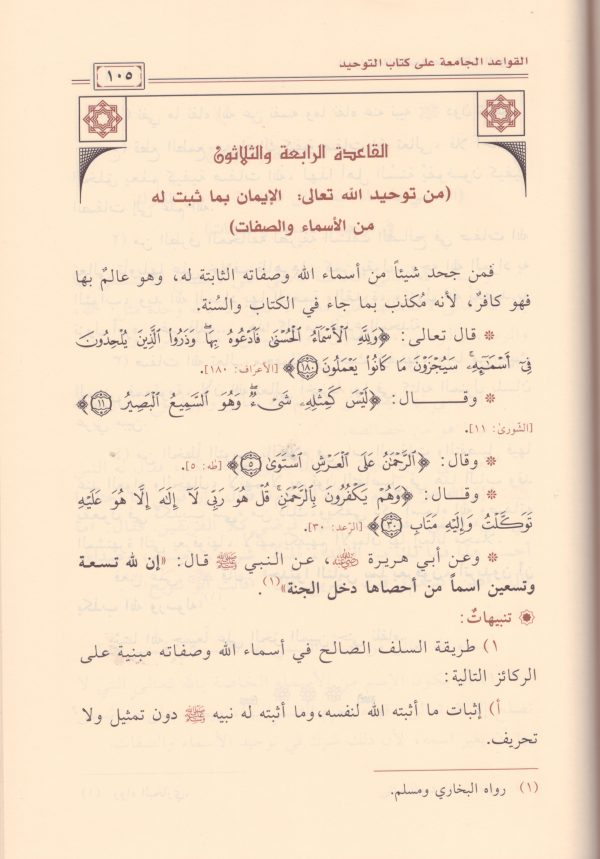 القواعد الجامعة على كتاب التوحيد
١٠٥
القاعدة الرابعة والثلاثون
(من توحيد الله تعالى: الإيمان بما ثبت له
من الأسماء والصفات)
فمن جحد شيئاً من أسماء الله وصفاته الثابتة له، وهو عالمٌ بها
فهو كافرٌ، لأنه مُكذب بما جاء في الكتاب والسُنة.
* قال تعالى: ﴿وَلِلَّهِ الْأَسْمَاءُ الْحُسْنَىٰ فَادْعُوهُ بِهَا ۖ وَذَرُوا الَّذِينَ يُلْحِدُونَ
فِي أَسْمَائِهِ ۚ سَيُجْزَوْنَ مَا كَانُوا يَعْمَلُونَ ١٨٠﴾ [الأعراف: ١٨٠].
* وقـــال: ﴿لَيْسَ كَمِثْلِهِ شَيْءٌ ۖ وَهُوَ السَّمِيعُ الْبَصِيرُ ١١﴾
[الشورى: ١١].
* وقال: ﴿الرَّحْمَٰنُ عَلَى الْعَرْشِ اسْتَوَىٰ ٥﴾ [طه: ٥].
* وقـــال: ﴿وَهُمْ يَكْفُرُونَ بِالرَّحْمَٰنِ ۚ قُلْ هُوَ رَبِّي لَا إِلَٰهَ إِلَّا هُوَ عَلَيْهِ
تَوَكَّلْتُ وَإِلَيْهِ مَتَابِ ٣٠﴾ [الرعد: ٣٠].
* وعن أبي هريرة رضي الله عنه، عن النبي ﷺ قال: «إن لله تسعة
وتسعين اسماً من أحصاها دخل الجنة»(١).
تنبيهاتٌ:
١) طريقة السلف الصالح في أسماء الله وصفاته مبنية على
الركائز التالية:
أ) إثبات ما أثبته الله لنفسه، وما أثبته له نبيه ﷺ دون تمثيل ولا
تحريف.
(١) رواه البخاري ومسلم.